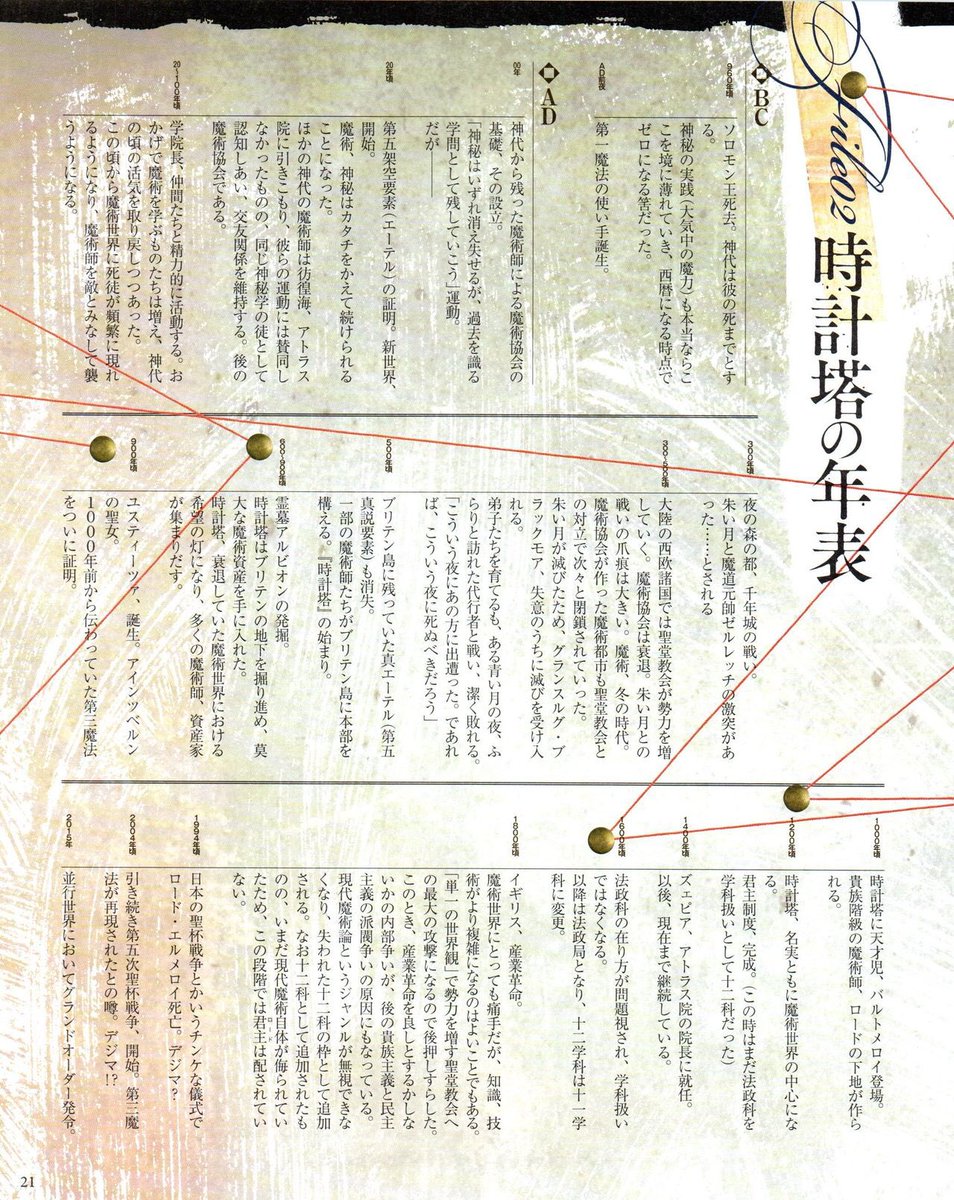 file02
時計塔の年表
■BC
960年頃
ソロモン王死去。神代は彼の死までとす
る。
神秘の実践(大気中の魔力)も本当ならこ
こを境に薄れていき、西暦になる時点で
ゼロになる筈だった。
AD前夜
第一魔法の使い手誕生。
■AD
00年
神代から残った魔術師による魔術協会の
基礎、その設立。
「神秘はいずれ消え失せるが、過去を識る
学問として残していこう」運動。
だが――
20年頃
第五架空要素(エーテル)の証明。新世界、
開始。
魔術、神秘はカタチをかえて続けられる
ことになった。
ほかの神代の魔術師は彷徨海、アトラス
院に引きこもり、彼らの運動には賛同し
なかったものの、同じ神秘学の徒として
認知しあい、交友関係を維持する。後の
魔術協会である。
20~100年頃
学院長、仲間たちと精力的に活動する。お
かげで魔術を学ぶものたちは増え、神代
の頃の活気を取り戻しつつあった。
この頃から魔術世界に死徒が頻繁に現れ
るようになり、魔術師を敵とみなして襲
うようになる。
300年頃
夜の森の都、千年城の戦い。
朱い月と魔道元帥ゼルレッチの激突があ
った……とされる
300~500年頃
大陸の西欧諸国では聖堂教会が勢力を増
していく。魔術協会は衰退。朱い月との
戦いの爪痕は大きい。魔術、冬の時代。
魔術協会が作った魔術都市も聖堂教会と
の対立で次々と閉鎖されていった。
朱い月が滅びたため、グランスルグ・ブ
ラックモア、失意のうちに滅びを受け入
れる。
弟子たちを育てるも、ある青い月の夜、ふ
らりと訪れた代行者と戦い、潔く敗れる。
「こういう夜にあの方に出遭った。であれ
ば、こういう夜に死ぬべきだろう」
500年頃
ブリテン島に残っていた真エーテル(第五
真説要素)も消失。
一部の魔術師たちがブリテン島に本部を
構える。『時計塔』の始まり。
600~900年頃
霊墓アルビオンの発掘。
時計塔はブリテンの地下を掘り進め、莫
大な魔術資産を手に入れた。
時計塔、衰退していた魔術世界における
希望の灯になり、多くの魔術師、資産家
が集まりだす。
900年頃
ユスティーツァ、誕生。アインツベルン
の聖女。
1000年前から伝わっていた第三魔法
をついに証明。
1000年頃
時計塔に天才児、バルトメロイ登場。
貴族階級の魔術師、ロードの下地が作ら
れる。
1200年頃
時計塔、名実ともに魔術世界の中心にな
る。
君主制度、完成。(この時はまだ法政科を
学科扱いとして十二科だった)
1400年頃
ズェピア、アトラス院の院長に就任。
以後、現在まで継続している。
1600年頃
法政科の在り方が問題視され、学科扱い
ではなくなる。
以降は法政局となり、十二学科は十一学
科に変更。
1800年頃
イギリス、産業革命。
魔術世界にとっても痛手だが、知識、技
術がより複雑になるのはよいことでもある。
「単一の世界観」で勢力を増す聖堂教会へ
の最大の攻撃になるので後押しすらした。
このとき、産業革命を良しとするかしな
いかの内部争いが、後の貴族主義と民主
主義の派閥争いの原因にもなっている。
現代魔術論というジャンルが無視できな
くなり、失われた十二科の枠として追加
される。なお十二科として追加されたも
のの、いまだ現代魔術自体が侮られてい
たため、この段階では君主は配されてい
ない。
1994年頃
日本の聖杯戦争とかいうチンケな儀式で
ロード・エルメロイ死亡。デジマ?
2004年頃
引き続き第五次聖杯戦争、開始。第三魔
法が再現されたとの噂。デジマ!?
2015年
並行世界においてグランドオーダー発令。
21